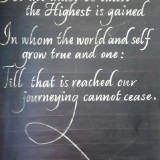 the Highest is gained
In whom the world and self
grow true and one:
Till that is reached our
journeying cannot cease.